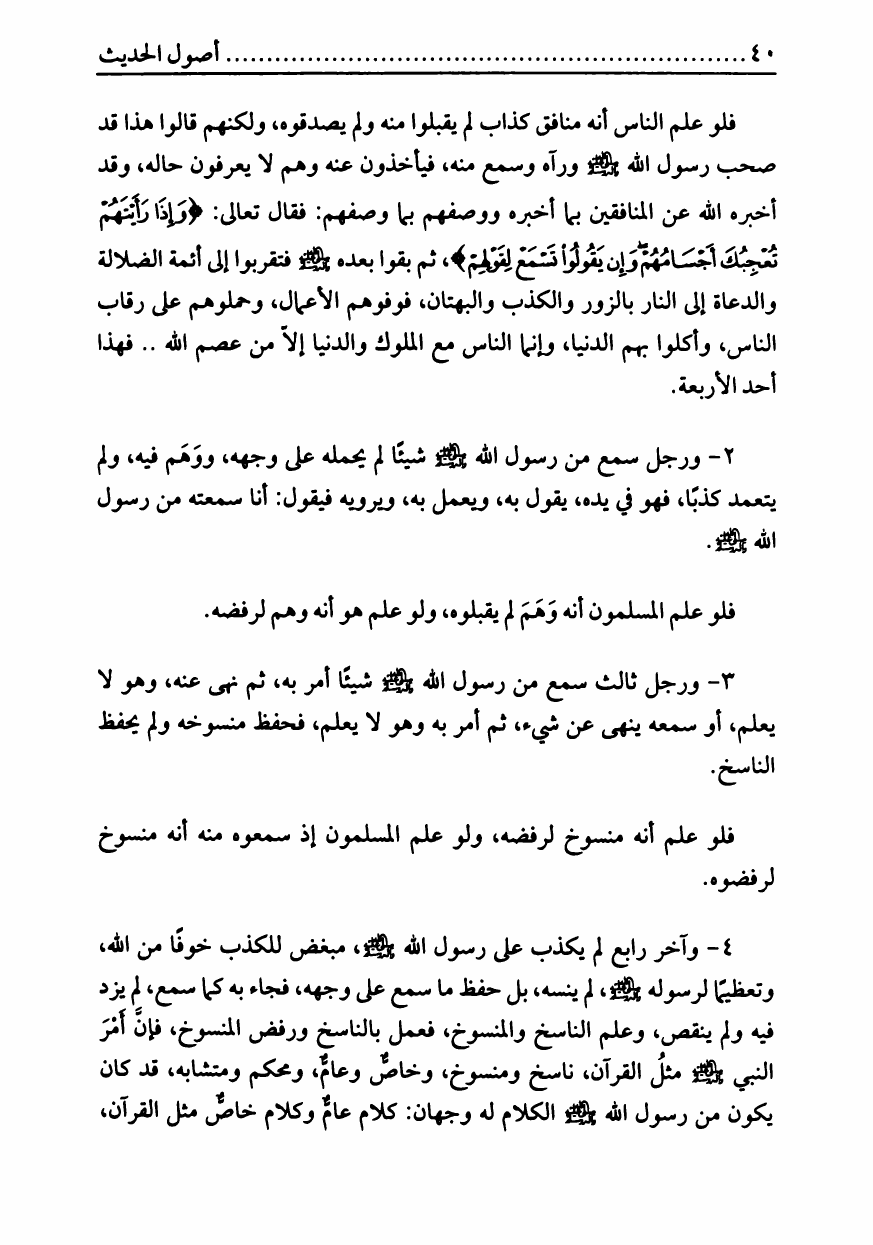 ٤٠ ................................................................ أصول الحديث
فلو علم الناس أنه منافق كذاب لم يقبلوا منه ولم يصدقوه، ولكنهم قالوا هذا قد
صحب رسول الله ﷺ ورآه وسمع منه، فيأخذون عنه وهم لا يعرفون حاله، وقد
أخبره الله عن المنافقين بما أخبره ووصفهم بما وصفهم: فقال تعالى: ﴿وَإِذَا رَأَيْتَهُمْ
تُعْجِبُكَ أَجْسَامُهُمْ وَإِن يَقُولُوا تَسْمَعْ لِقَوْلِهِمْ﴾، ثم بقوا بعده ﷺ فتقربوا إلى أئمة الضلالة
والدعاة إلى النار بالزور والكذب والبهتان، فوفوهم الأعمال، وحملوهم على رقاب
الناس، وأكلوا بهم الدنيا، وإنما الناس مع الملوك والدنيا إلاّ من عصم الله .. فهذا
أحد الأربعة.
٢- ورجل سمع من رسول الله ﷺ شيئًا لم يحمله على وجهه، ووَهَم فيه، ولم
يتعمد كذبًا، فهو في يده، يقول به، ويعمل به، ويرويه فيقول: أنا سمعته من رسول
الله ﷺ.
فلو علم المسلمون أنه وَهَمَ لم يقبلوه، ولو علم هو أنه وهم لرفضه.
٣- ورجل ثالث سمع من رسول الله ﷺ شيئًا أمر به، ثم نهى عنه، وهو لا
يعلم، أو سمعه ينهى عن شيء، ثم أمر به وهو لا يعلم، فحفظ منسوخه ولم يحفظ
الناسخ.
فلو علم أنه منسوخ لرفضه، ولو علم المسلمون إذ سمعوه منه أنه منسوخ
لرفضوه.
٤- وآخر رابع لم يكذب على رسول الله ﷺ، مبغض للكذب خوفًا من الله،
وتعظيمًا لرسوله ﷺ، لم ينسه، بل حفظ ما سمع على وجهه، فجاء به كما سمع، لم يزد
فيه ولم ينقص، وعلم الناسخ والمنسوخ، فعمل بالناسخ ورفض المنسوخ، فإنَّ أَمْرَ
النبي ﷺ مثلُ القرآن، ناسخ ومنسوخ، وخاصٌّ وعامٌّ، ومحكم ومتشابه، قد كان
يكون من رسول الله ﷺ الكلام له وجهان: كلام عامٌّ وكلام خاصٌّ مثل القرآن،